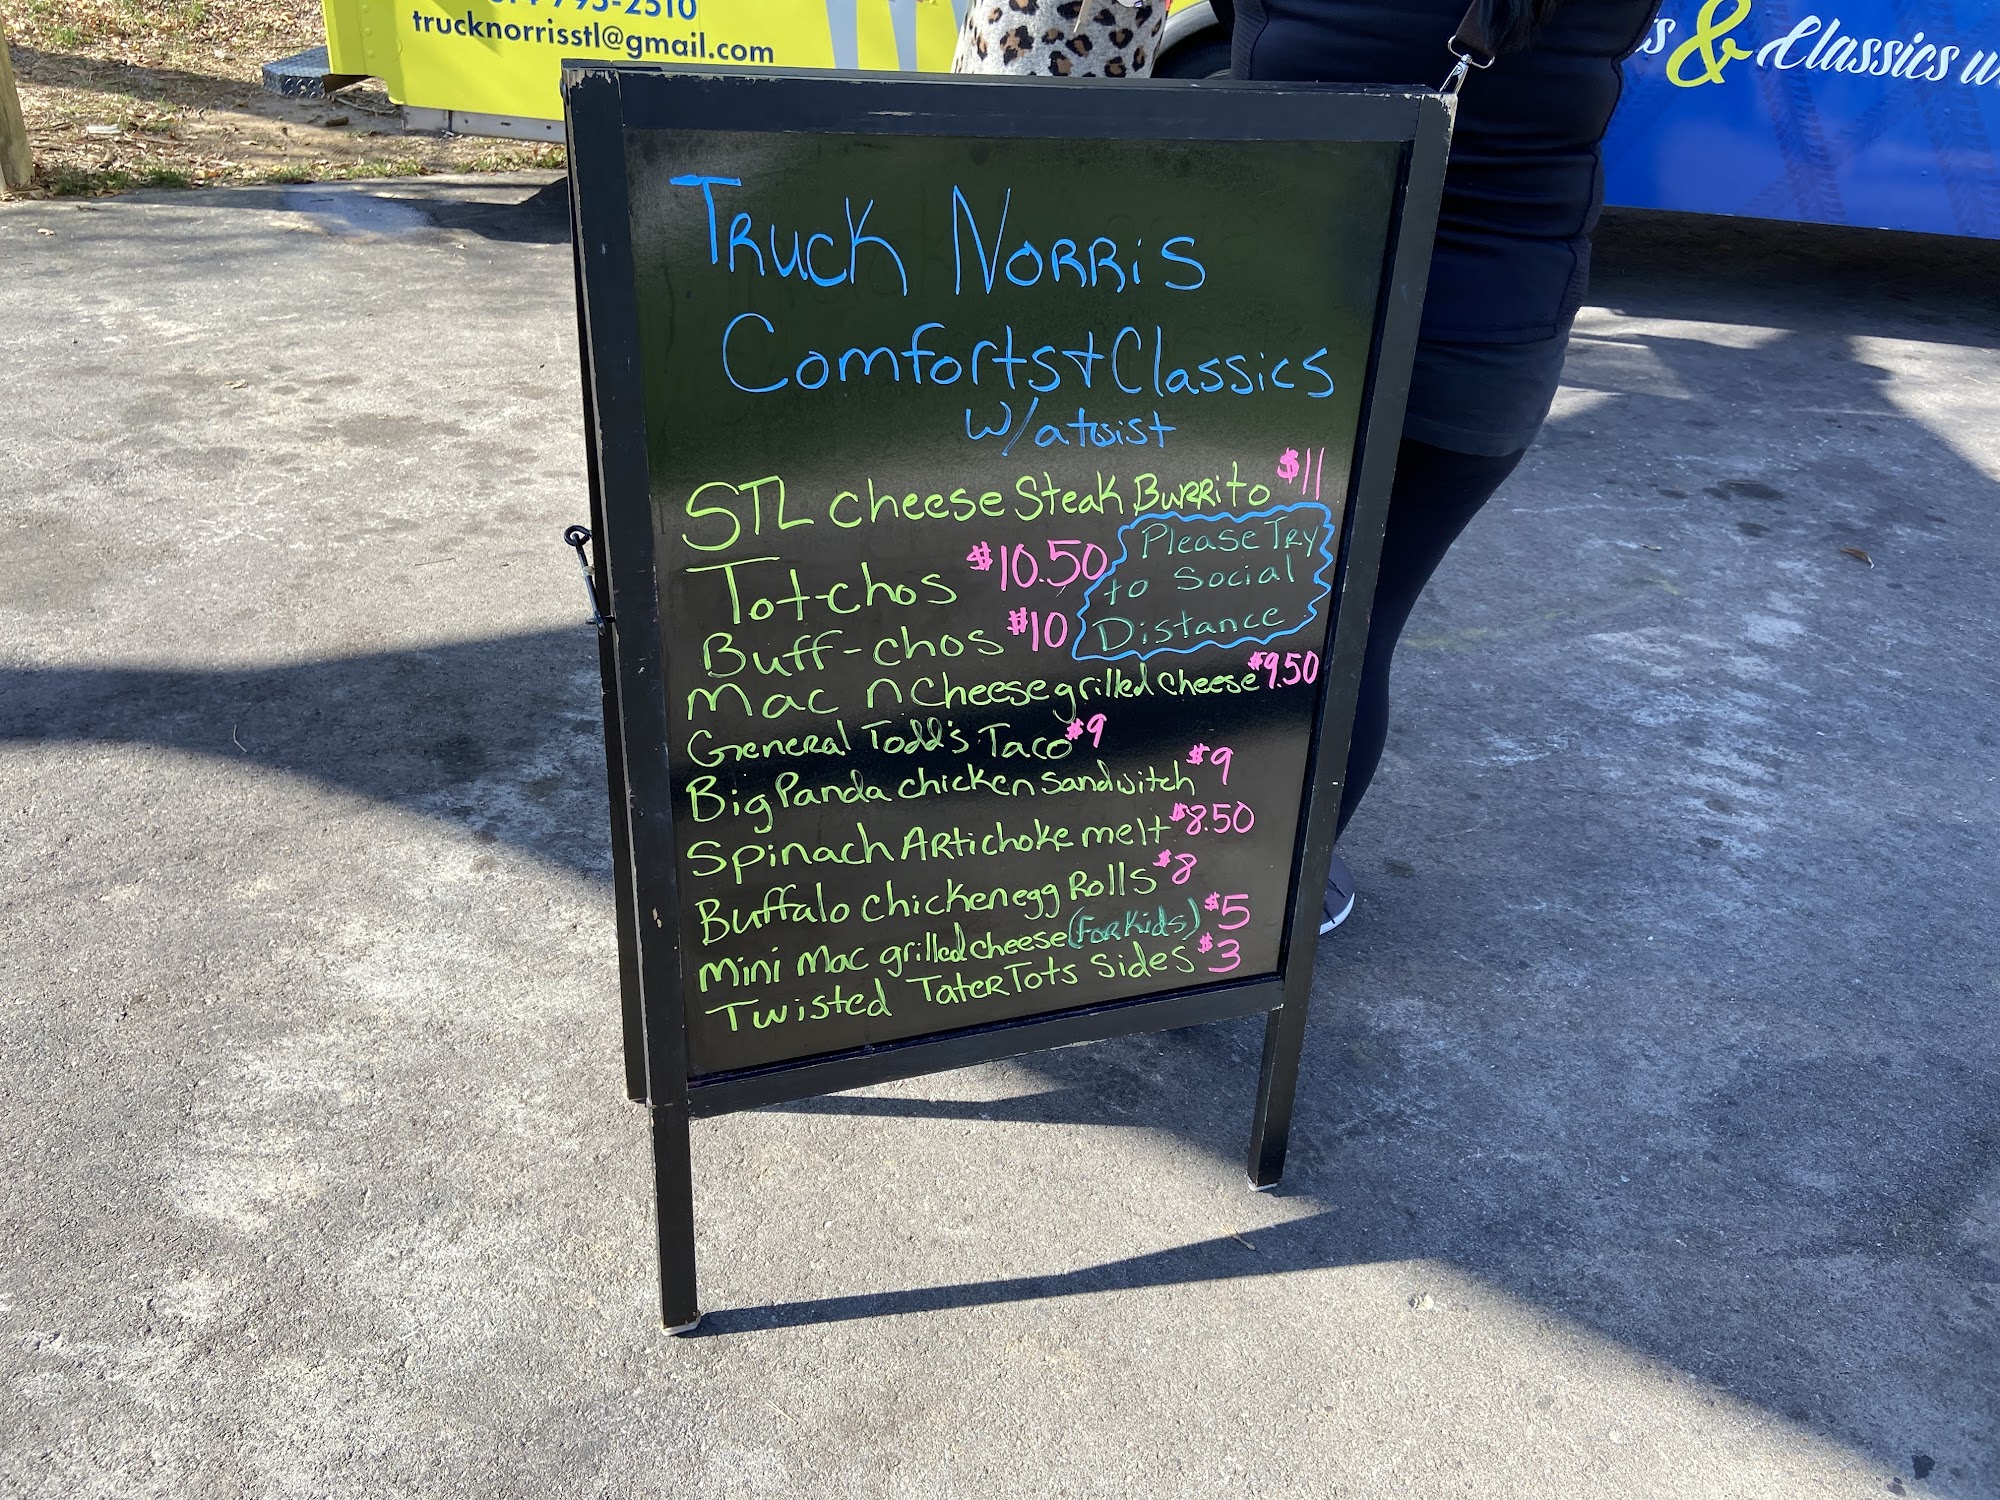 795-2510
trucknorrisstl@gmail.com
& Classics w
Truck Norris
Comforts & Classics
w/ a twist
STL cheese Steak Burrito $11
Tot-chos $10.50
Please Try
to Social
Distance
Buff-chos $10
Mac n Cheese grilled cheese $9.50
General Todd's Taco $9
Big Panda chicken Sandwitch $9
Spinach Artichoke melt $8.50
Buffalo chicken egg Rolls $8
Mini Mac grilled cheese (For Kids) $5
Twisted Tater Tots Sides $3